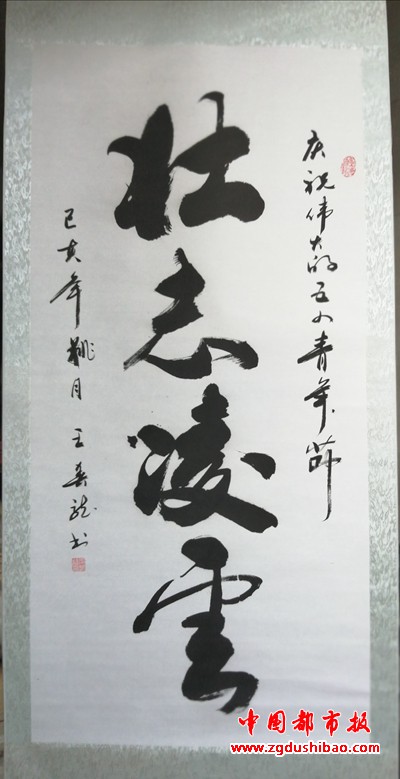 庆祝伟大的五四青年節
壮志凌雲
己亥年桃月 王 书
中国都市报
www.zgdushibao.com